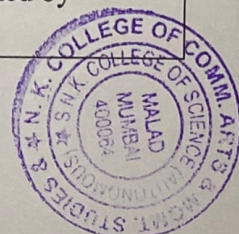 by
★ N. K. COLLEGE OF COMM. ARTS & MGMT. STUDIES &
★ S N K COLLEGE OF SCIENCE (AUTONOMOUS)
MALAD
MUMBAI
400064